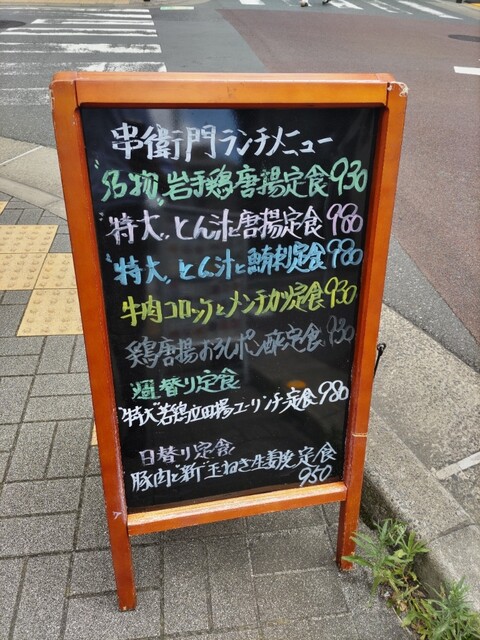 串衛門ランチメニュー
"名物"岩手鶏唐揚定食930
"特大"とん汁と唐揚定食980
"特大"とん汁と鮪刺定食980
牛肉コロッケとメンチカツ定食930
鶏唐揚おろしポン酢定食930
週替り定食
"特大"若鶏竜田揚ユーリンチ定食980
日替り定食
豚肉と"新"玉ねぎ生姜焼定食
950